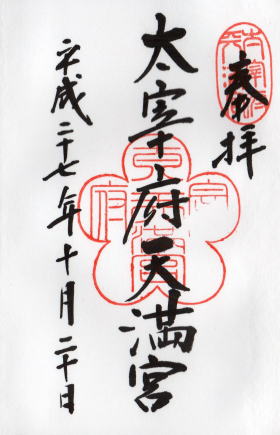 奉拝
太宰府天満宮
平成二十七年十月二十日